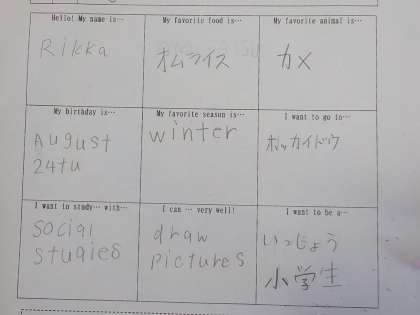 Hello! My name is…
Rikka
My favorite food is…
オムライス
My favorite animal is…
カメ
My birthday is…
August
24tu
My favorite season is…
winter
I want to go to…
ホッカイドウ
I want to study… with…
social
stuaies
I can … very well!
draw
pictures
I want to be a…
いっじょう
小学生